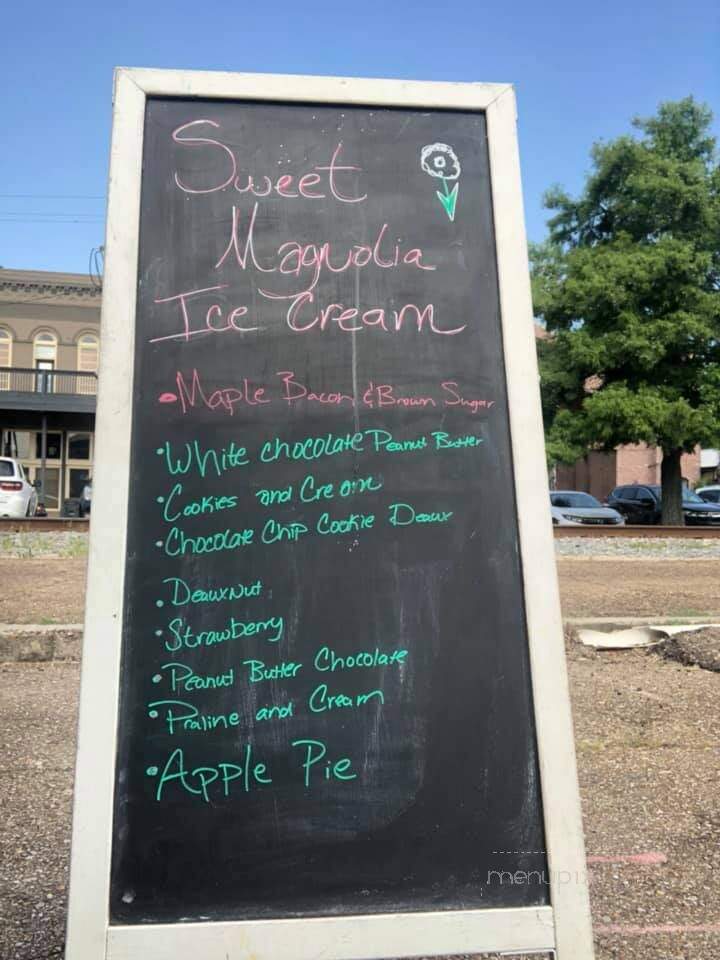 Sweet
Magnolia
Ice Cream
•Maple Bacon & Brown Sugar
•White chocolate Peanut Butter
•Cookies and Cream
•Chocolate Chip Cookie Deaux
•Deauxnut
•Strawberry
•Peanut Butter Chocolate
•Praline and Cream
•Apple Pie
menupix